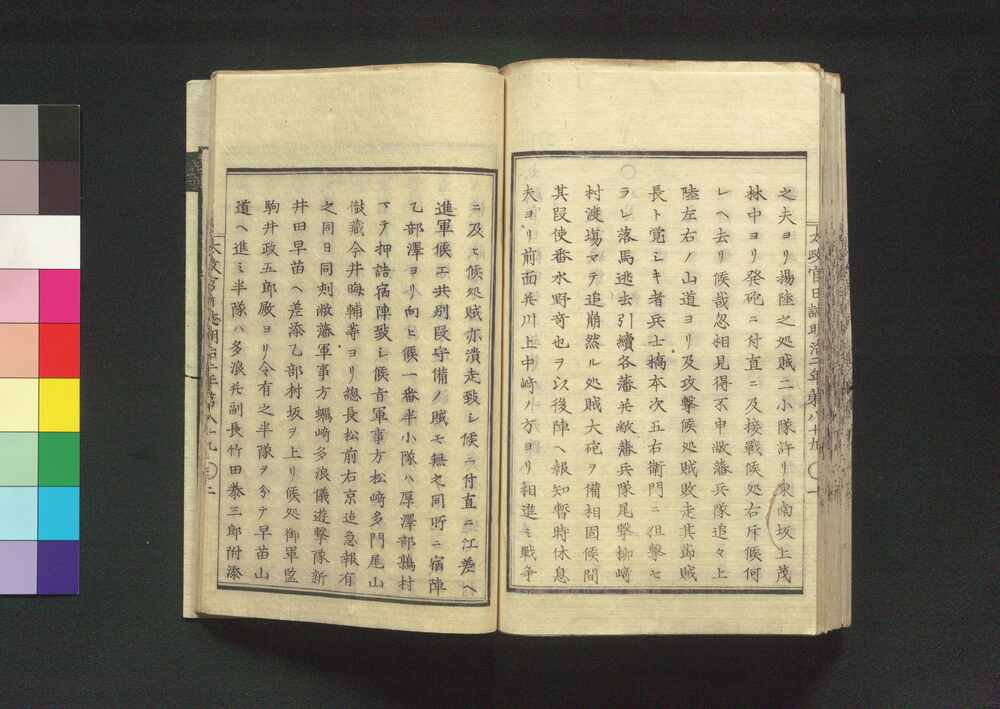 太政官日誌明治二年第八十九 〇一
之夫ヨリ揚陸之処賊二小隊許リ東南坂上茂
林中ヨリ発砲ニ付直ニ及接戦候処右斥候何
レヘ去リ候哉忽相見得不申敝藩兵隊追々上
陸左右ノ山道ヨリ及攻撃候処賊敗走其節賊
長ト覚シキ者兵士橋本次五右衛門ニ狙撃セ
ラレ落馬逃去引續各藩共敝藩兵隊尾撃柳崎
村渡塲マテ追崩然ル処賊大砲ヲ備相固候間
其段使番水野奇也ヲ以後陣ヘ報知暫時休息
夫ヨリ前面共川上中崎ノ方ヨリ相進ミ戦争
ニ及ヒ候処賊亦潰走致シ候ニ付直ニ江差ヘ
進軍候エ共別段守備ノ賊モ無之同所ニ宿陣
乙部澤ヨリ向ヒ候一番半小隊ハ厚澤部鶉村
マテ押詰宿陣致シ候旨軍事方松崎多門尾山
徴藏今井晦輔等ヨリ總長松前右京迠急報有
之同日同刻敝藩軍事方蠣崎多浪儀遊撃隊新
井田早苗ヘ差添乙部村坂ヲ上リ候処御軍監
駒井政五郎殿ヨリ令有之半隊ヲ分テ早苗山
道ヘ進ミ半隊ハ多浪共副長竹田泰三郎附添
太政官日誌明治二年第八十九 〇二